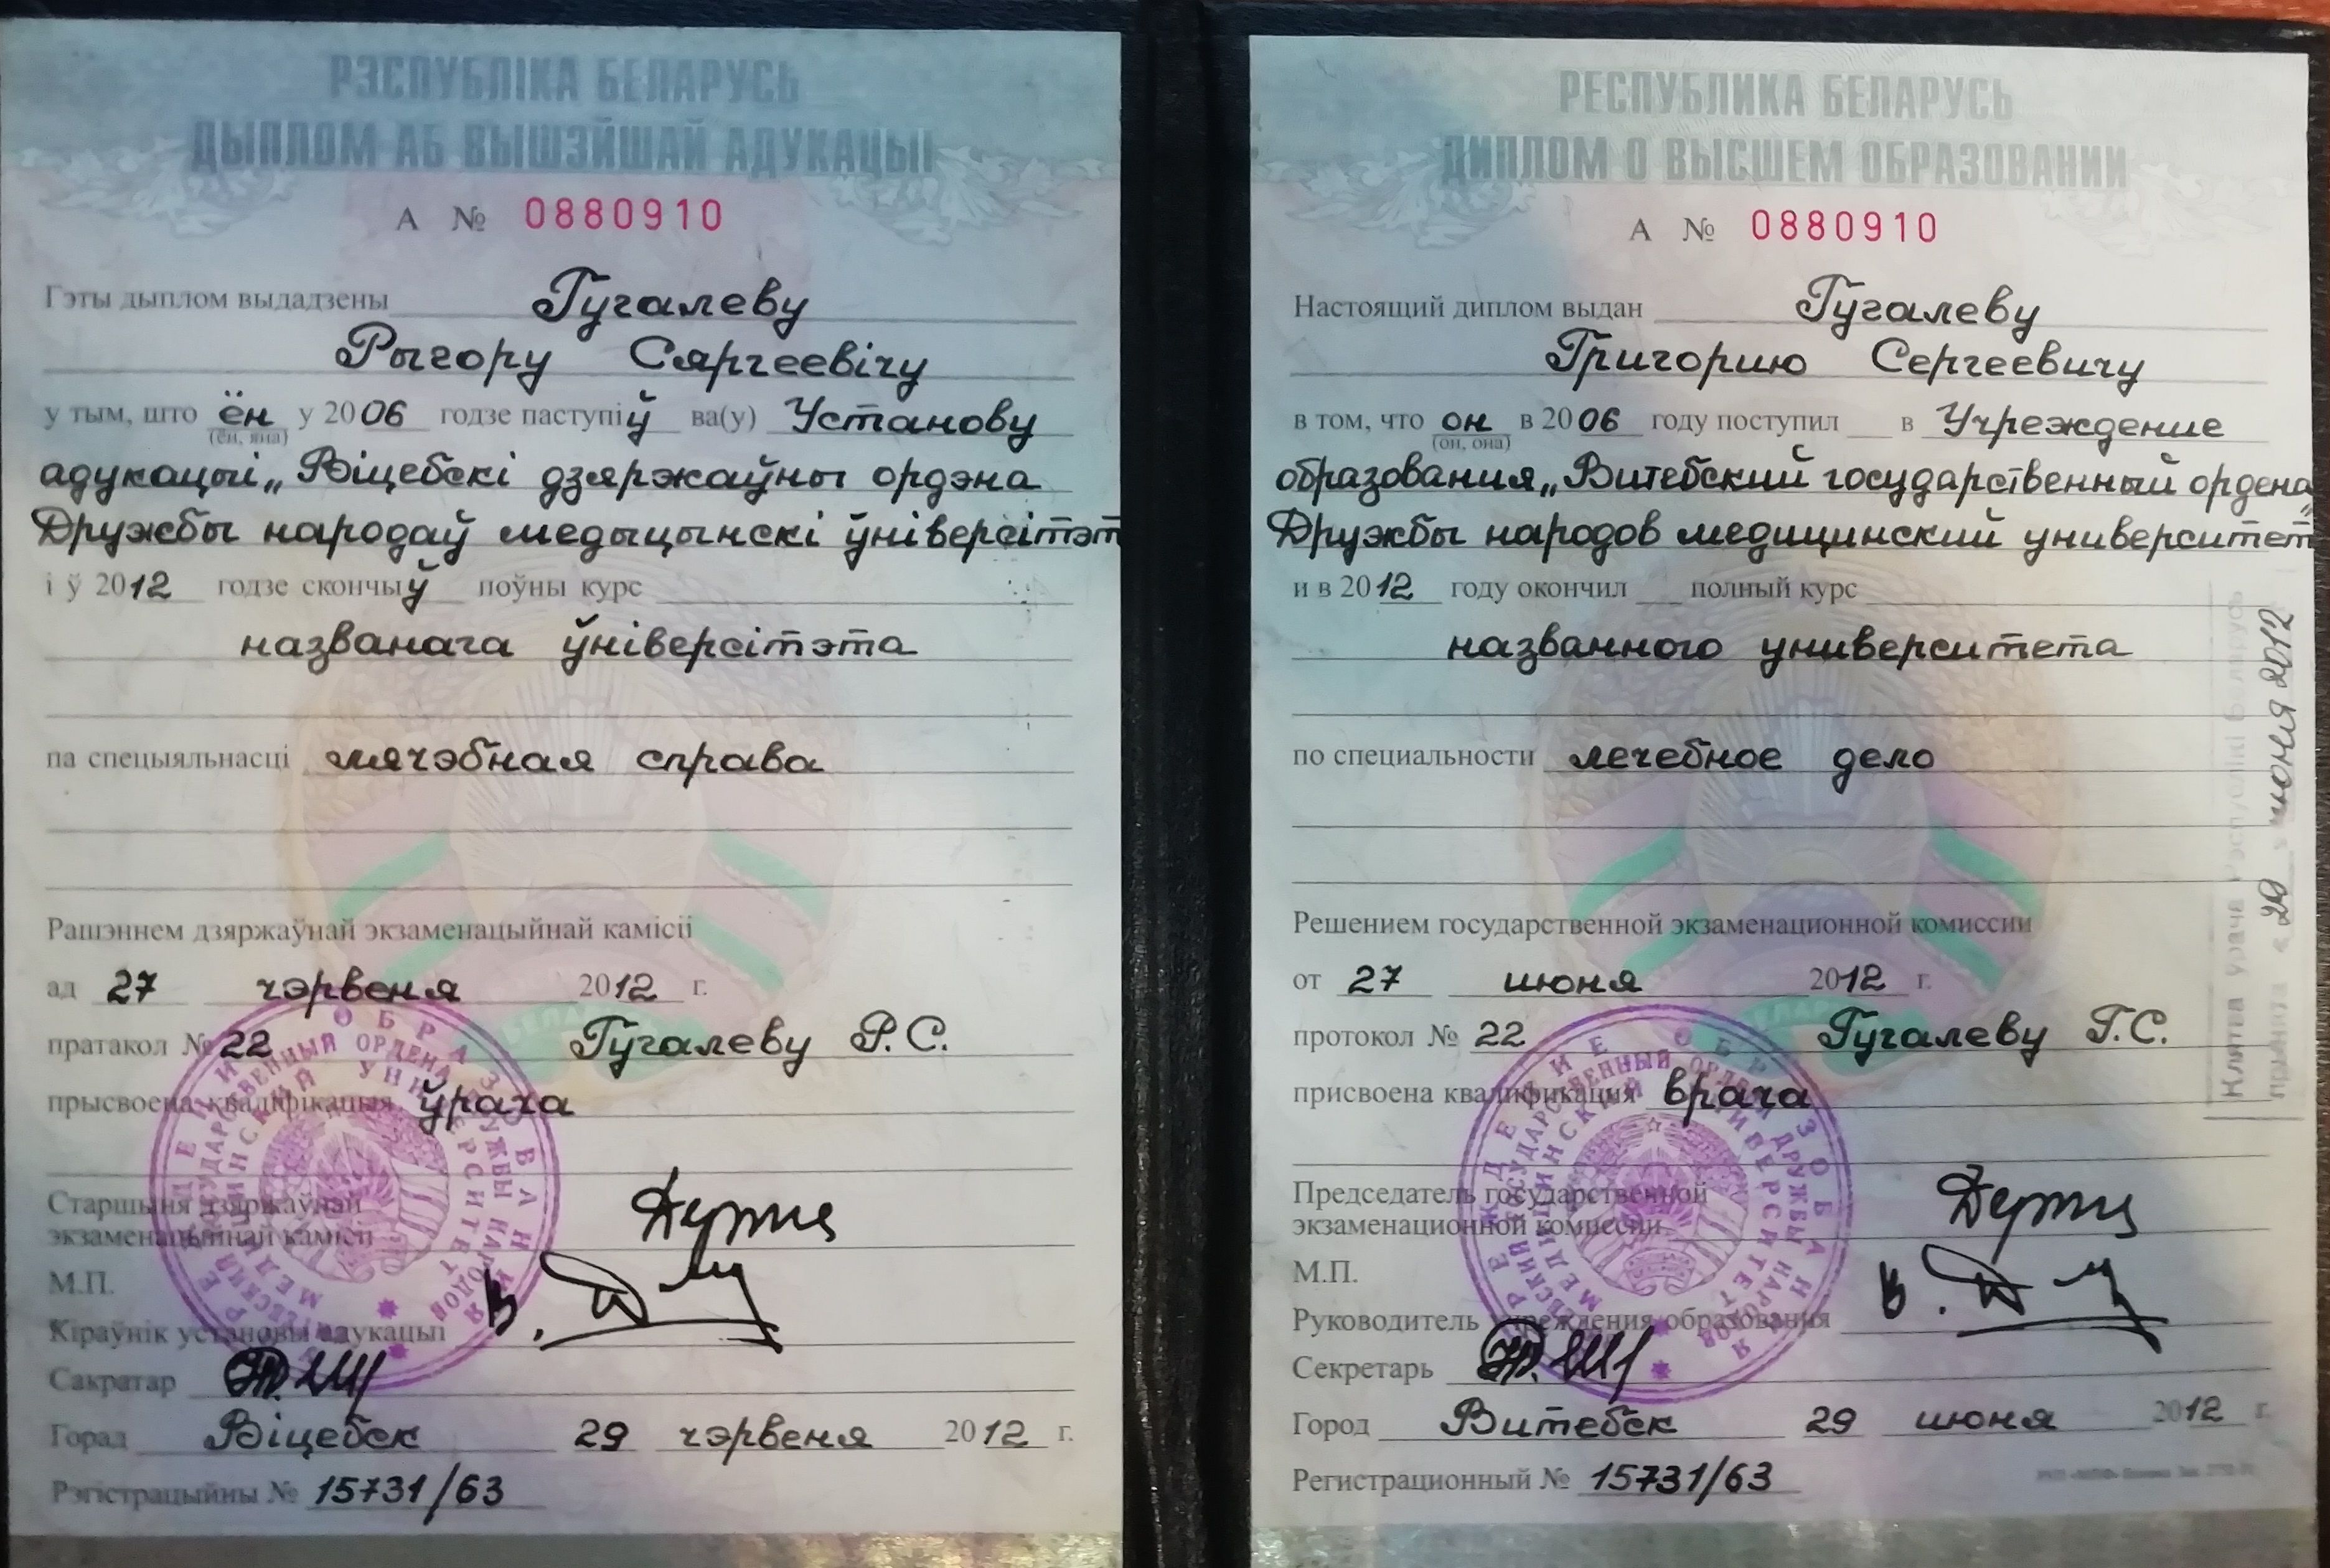 РЭСПУБЛІКА БЕЛАРУСЬ
ДЫПЛОМ АБ ВЫШЭЙШАЙ АДУКАЦЫІ
А № 0880910
Гэты дыплом выдадзены Гугалеву
Рыгору Сяргеевічу
у тым, што ён у 2006 годзе паступіў ва(у) Установу
(ён, яна)
адукацыі „Віцебскі дзяржаўны ордэна
Дружбы народаў медыцынскі ўніверсітэт
і ў 2012 годзе скончыў поўны курс
названага ўніверсітэта
па спецыяльнасці лячэбная справа
Рашэннем дзяржаўнай экзаменацыйнай камісіі
ад 27 чэрвеня 2012 г.
пратакол № 22 Гугалеву Р.С.
прысвоена кваліфікацыя ўрача
Старшыня дзяржаўнай
экзаменацыйнай камісіі
М.П.
Кіраўнік установы адукацыі
Сакратар
Горад Віцебск 29 чэрвеня 2012 г.
Рэгістрацыйны № 15731/63
РЕСПУБЛИКА БЕЛАРУСЬ
ДИПЛОМ О ВЫСШЕМ ОБРАЗОВАНИИ
А № 0880910
Настоящий диплом выдан Гугалеву
Григорию Сергеевичу
в том, что он в 2006 году поступил в Учреждение
(он, она)
образования „Витебский государственный ордена
Дружбы народов медицинский университет
и в 2012 году окончил полный курс
названного университета
по специальности лечебное дело
Решением государственной экзаменационной комиссии
от 27 июня 2012 г.
протокол № 22 Гугалеву Г.С.
присвоена квалификация врача
Председатель государственной
экзаменационной комиссии
М.П.
Руководитель учреждения образования
Секретарь
Город Витебск 29 июня 2012 г.
Регистрационный № 15731/63
Клятва ўрача Рэспублікі Беларусь
прынята «29» июня 2012